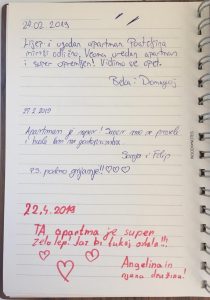 24.02.2019
Lijep i ugodan apartman. Posteljina
miriši odlično. Veoma uredan apartman
i super opremljen! Vidimo se opet.
Beba i Domagoj
27.2.2019
Apartman je super! Super smo se proveli
i hvala Vam na gostoprimstvu.
Sanja i Filip
P.S. podno grijanje!!♡♡♡♡
22.4.2019
TA apartma je super
zelo lep! Jaz bi tukaj ostala!!!
Angelina in
njena družina!